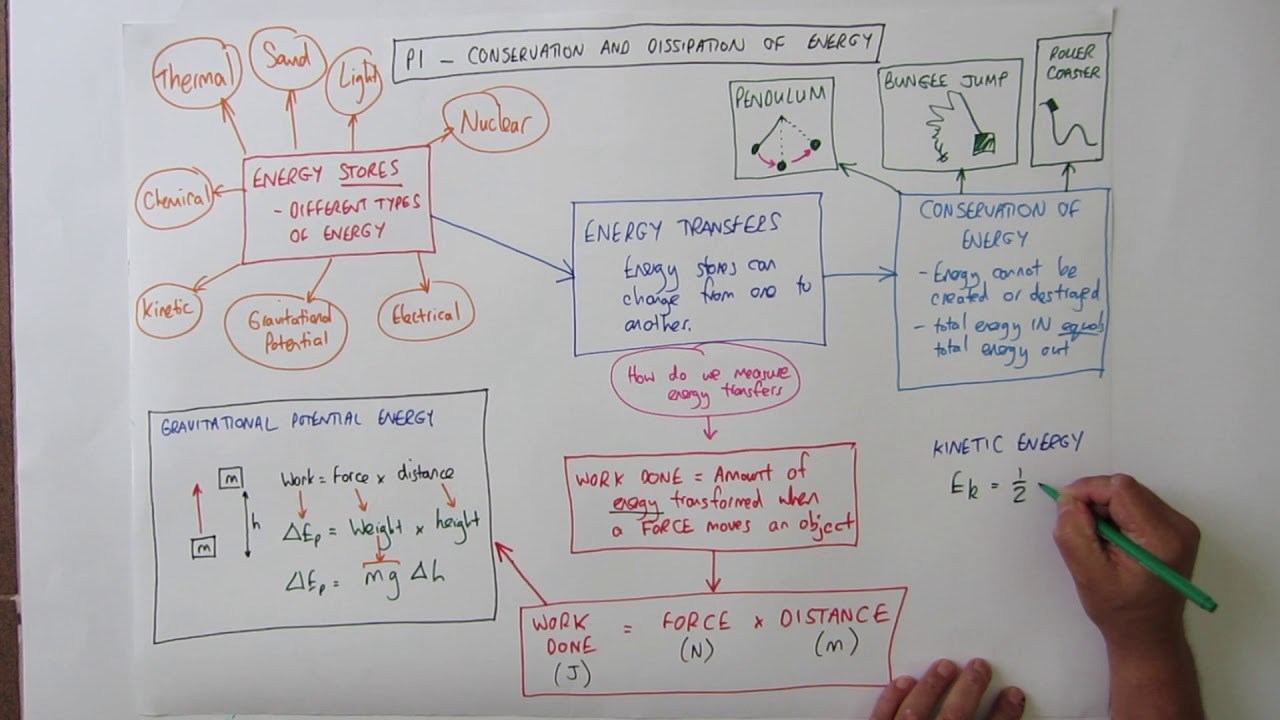 P1 - CONSERVATION AND DISSIPATION OF ENERGY
Thermal
Sound
Light
Nuclear
Chemical
Kinetic
Gravitational
Potential
Electrical
ENERGY STORES
- DIFFERENT TYPES
OF ENERGY
ENERGY TRANSFERS
Energy stores can
change from one to
another.
PENDULUM
BUNGEE JUMP
ROLLER
COASTER
CONSERVATION OF
ENERGY
- Energy cannot be
created or destroyed
- total energy IN equals
total energy out
How do we measure
energy transfers
WORK DONE = Amount of
energy transformed when
a FORCE moves an object
WORK DONE = FORCE × DISTANCE
(J) (N) (m)
GRAVITATIONAL POTENTIAL ENERGY
m
m
h
Work = force × distance
ΔEp = Weight × height
ΔEp = mg Δh
KINETIC ENERGY
Ek = 1/2